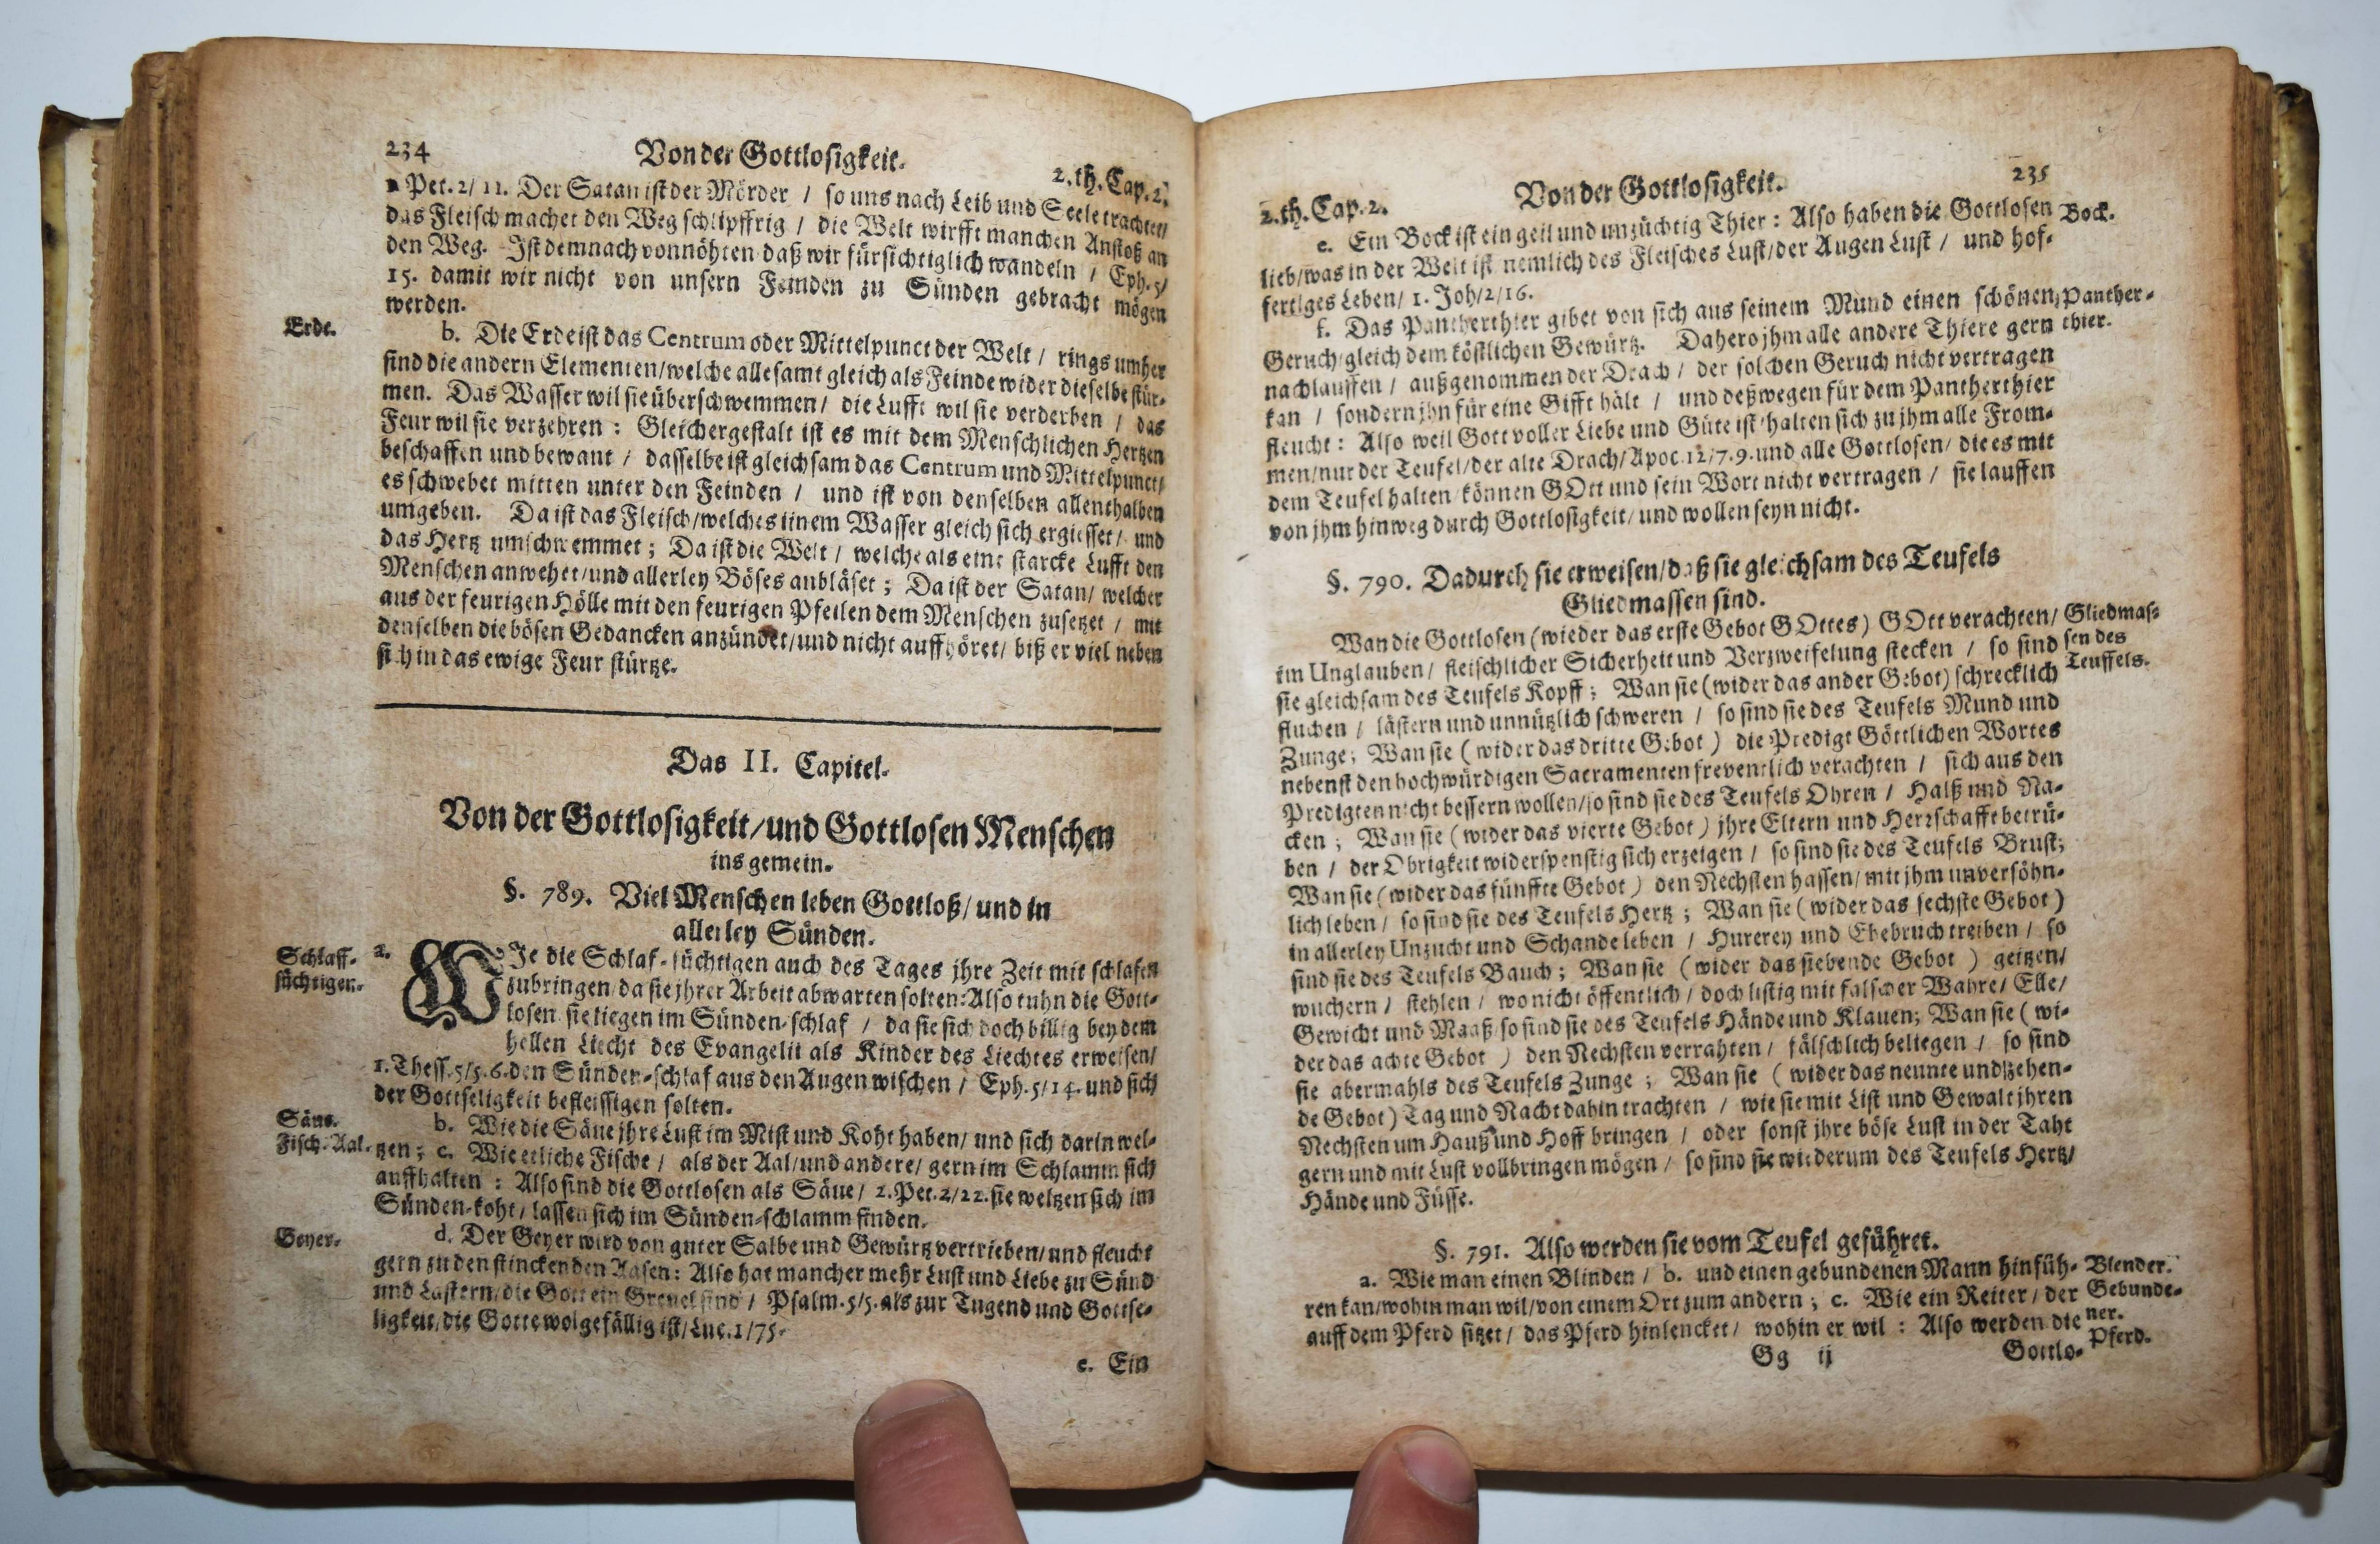 234 Von der Gottlosigkeit. 2. th. Cap. 2.
Pet. 2/ 11. Der Satan ist der Mörder / so uns nach Leib und Seele trachtet/
das Fleisch machet den Weg schlipffrig / die Welt wirfft manchen Anstoß an
den Weg. Ist demnach vonnöhten daß wir fürsichtiglich wandeln / Eph. 5/
15. damit wir nicht von unsern Feinden zu Sünden gebracht mögen
werden.
Erde.
b. Die Erde ist das Centrum oder Mittelpunct der Welt / rings umher
sind die andern Elementen/welche alle samt gleich als Feinde wider dieselbe stür-
men. Das Wasser wil sie überschwemmen/ die Lufft wil sie verderben / das
Feur wil sie verzehren : Gleichergestalt ist es mit dem Menschlichen Hertzen
beschaffen und bewant / dasselbe ist gleichsam das Centrum und Mittelpunct/
es schwebet mitten unter den Feinden / und ist von denselben allenthalben
umgeben. Da ist das Fleisch/welches einem Wasser gleich sich ergiesset/ und
das Hertz umschwemmet ; Da ist die Welt / welche als eine starcke Lufft den
Menschen anwehet/und allerley Böses anbläset ; Da ist der Satan/ welcher
aus der feurigen Hölle mit den feurigen Pfeilen dem Menschen zusetzet / mit
denselben die bösen Gedancken anzündet/und nicht auffhöret/ biß er viel neben
sich in das ewige Feur stürtze.
Das II. Capitel.
Von der Gottlosigkeit/und Gottlosen Menschen
ins gemein.
§. 789. Viel Menschen leben Gottloß/ und in
allerley Sünden.
Schlaff-
süchtiger.
a. WIe die Schlaf-süchtigen auch des Tages jhre Zeit mit schlafen
zubringen/da sie jhrer Arbeit abwarten solten: Also tuhn die Gott-
losen sie liegen im Sünden-schlaf / da sie sich doch billig bey dem
hellen Liecht des Evangelii als Kinder des Liechtes erweisen/
1. Thess. 5/5.6. den Sünden-schlaf aus den Augen wischen / Eph. 5/14. und sich
der Gottseligkeit befleissigen solten.
Säue.
Fisch. Aal.
b. Wie die Säue jhre Lust im Mist und Koht haben/ und sich darin wel-
tzen ; c. Wie etliche Fische / als der Aal/und andere/ gern im Schlamm sich
auffhalten : Also sind die Gottlosen als Säue/ 2. Pet. 2/22. sie weltzen sich im
Sünden-koht/ lassen sich im Sünden-schlamm finden.
Geyer.
d. Der Geyer wird von guter Salbe und Gewürtz vertrieben/und fleucht
gern zu den stinckenden Aasen: Also hat mancher mehr Lust und Liebe zu Sünd
und Lastern/die Gott ein Greuel sind / Psalm. 5/5. als zur Tugend und Gottse-
ligkeit/die Gotte wolgefällig ist/Luc. 1/75.
e. Ein
2. th. Cap. 2. Von der Gottlosigkeit. 235
e. Ein Bock ist ein geil und unzüchtig Thier : Also haben die Gottlosen
lieb/was in der Welt ist nemlich des Fleisches Lust/der Augen Lust / und hof-
fertiges Leben/ 1. Joh/2/16.
Bock.
f. Das Pantherthier gibet von sich aus seinem Mund einen schönen
Geruch/gleich dem köstlichen Gewürtz. Dahero jhm alle andere Thiere gern
nachlauffen / außgenommen der Drach / der solchen Geruch nicht vertragen
kan / sondern jhn für eine Gifft hält / und deßwegen für dem Pantherthier
fleucht : Also weil Gott voller Liebe und Güte ist/halten sich zu jhm alle From-
men/nur der Teufel/der alte Drach/Apoc. 12/7.9. und alle Gottlosen/ die es mit
dem Teufel halten/können GOtt und sein Wort nicht vertragen / sie lauffen
von jhm hinweg durch Gottlosigkeit/ und wollen seyn nicht.
Panther-
thier.
§. 790. Dadurch sie erweisen/daß sie gleichsam des Teufels
Gliedmassen sind.
Wan die Gottlosen (wieder das erste Gebot GOttes) GOtt verachten/
im Unglauben/ fleischlicher Sicherheit und Verzweifelung stecken / so sind
sie gleichsam des Teufels Kopff ; Wan sie (wider das ander Gebot) schrecklich
fluchen / lästern und unnützlich schweren / so sind sie des Teufels Mund und
Zunge; Wan sie ( wider das dritte Gebot ) die Predigt Göttlichen Wortes
nebenst den hochwürdigen Sacramenten freventlich verachten / sich aus den
Predigten nicht bessern wollen/so sind sie des Teufels Ohren / Halß und Na-
cken ; Wan sie ( wider das vierte Gebot ) jhre Eltern und Herrschafft betrü-
ben / der Obrigkeit widerspenstig sich erzeigen / so sind sie des Teufels Brust;
Wan sie (wider das fünffte Gebot ) den Nechsten hassen/ mit jhm unversöhn-
lich leben / so sind sie des Teufels Hertz ; Wan sie ( wider das sechste Gebot )
in allerley Unzucht und Schande leben / Hurerey und Ehebruch treiben / so
sind sie des Teufels Bauch ; Wan sie ( wider das siebende Gebot ) geitzen/
wuchern / stehlen / wo nicht öffentlich / doch listig mit falscher Wahre/ Elle/
Gewicht und Maaß so sind sie des Teufels Hände und Klauen; Wan sie ( wi-
der das achte Gebot ) den Nechsten verrahten / fälschlich beliegen / so sind
sie abermahls des Teufels Zunge ; Wan sie ( wider das neunte und zehen-
de Gebot) Tag und Nacht dahin trachten / wie sie mit List und Gewalt jhren
Nechsten um Hauß und Hoff bringen / oder sonst jhre böse Lust in der Taht
gern und mit Lust vollbringen mögen / so sind sie wiederum des Teufels Hertz/
Hände und Füsse.
Gliedmas-
sen des
Teuffels.
§. 791. Also werden sie vom Teufel geführet.
a. Wie man einen Blinden / b. und einen gebundenen Mann hinfüh-
ren kan/wohin man wil/von einem Ort zum andern ; c. Wie ein Reiter / der
auff dem Pferd sitzet / das Pferd hinlencket/ wohin er wil : Also werden die
Blender.
Gebunde-
ner.
Pferd.
Gg ij Gottlo-